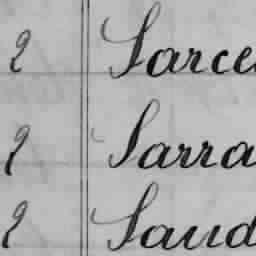 2 Sarce
2 Sarra
2 Saud